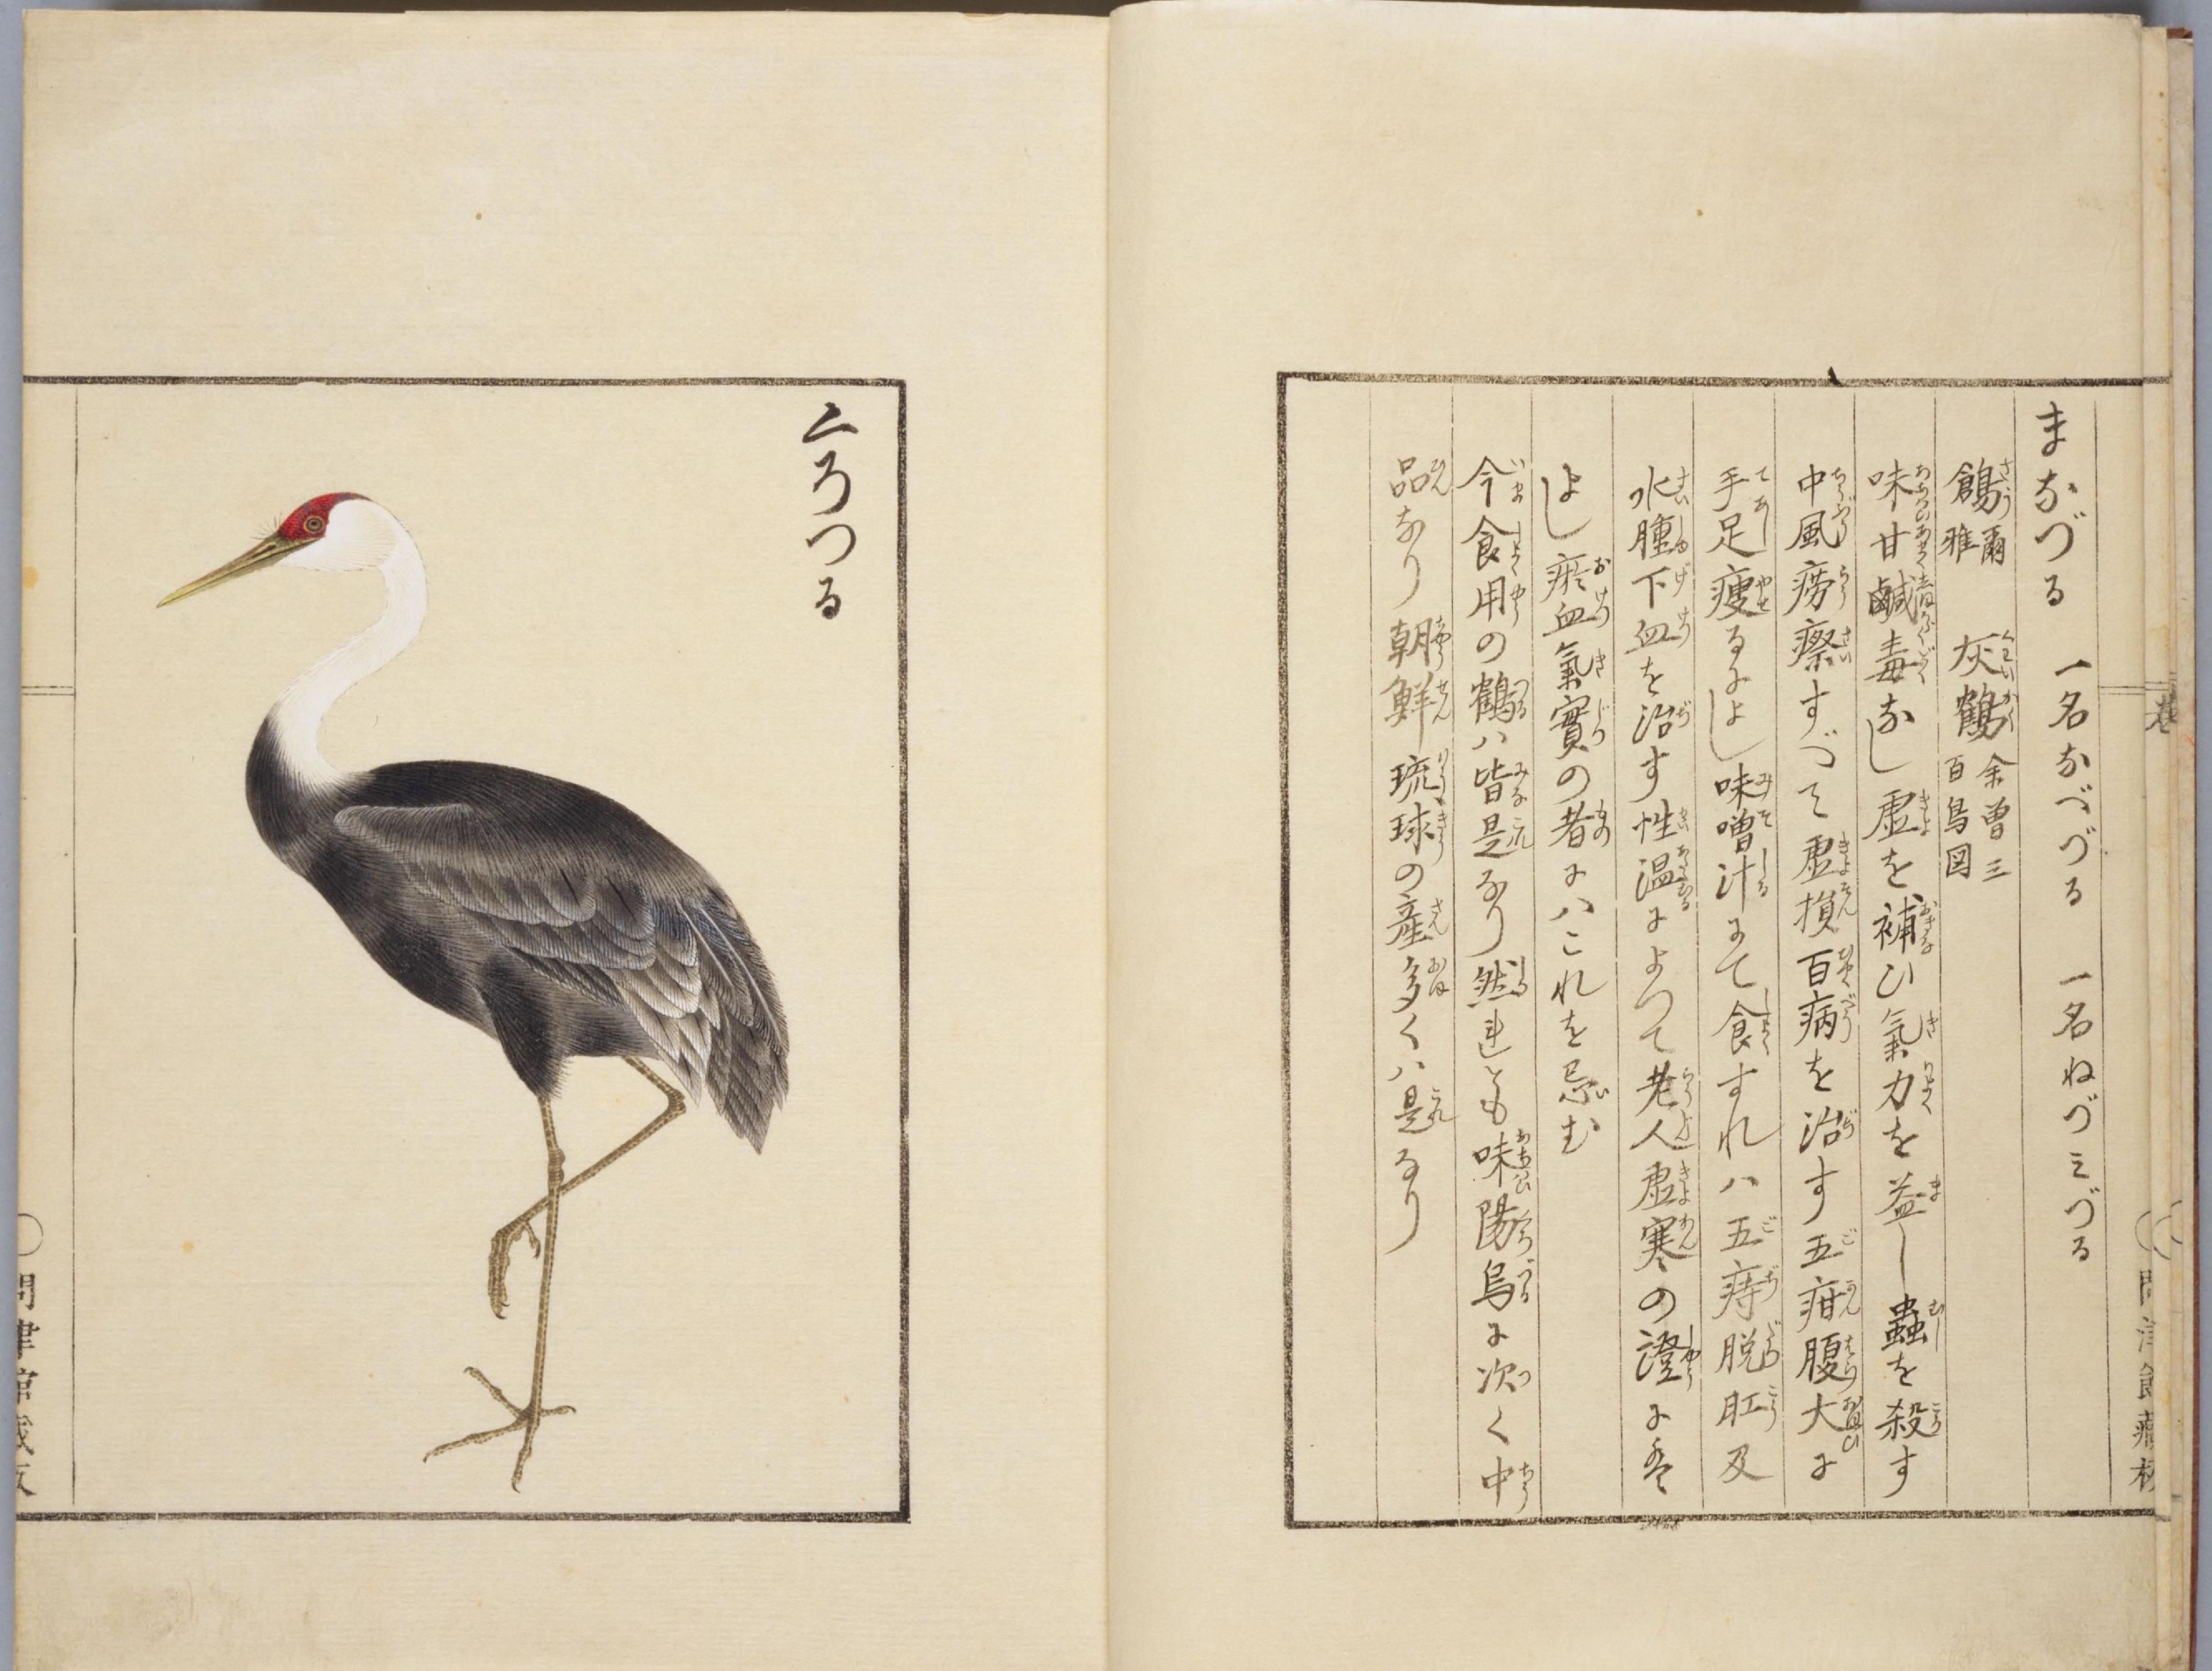 まなづる 一名なべづる 一名ねづミづる
鶬 爾雅 灰鶴 余曽三百鳥図
味甘鹹毒なし虚を補ひ氣力を益し蟲を殺す
中風癆瘵すべて虚損百病を治す五疳腹大に
手足痩るによし味噌汁にて食すれハ五痔脱肛及
水腫下血を治す性温によつて老人虚寒の澄に
よし瘀血氣實の者にハこれを忌む
今食用の鶴ハ皆是なり然れども味陽烏に次く中
品なり朝鮮琉球の産多くハ是なり
くろつる
問津館蔵